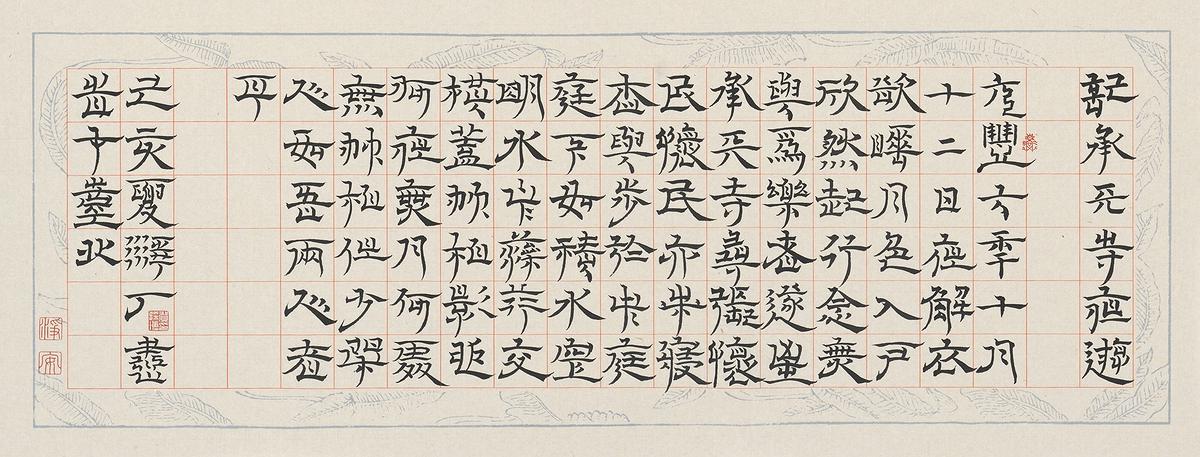 記承天寺夜遊
元豐六年十月
十二日夜解衣
欲睡月色入戶
欣然起行念無
與爲樂者遂至
承天寺尋張懷
民懷民亦未寢
相與步於中庭
庭下如積水空
明水中藻荇交
橫蓋竹柏影也
何夜無月何處
無竹柏但少閑
人如吾兩人者
耳
己亥夏丁書
旹于臺北